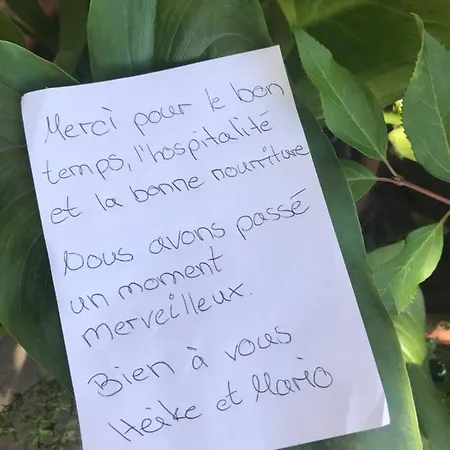 Merci pour le bon
temps, l'hospitalité
et la bonne nourriture
Nous avons passé
un moment
merveilleux.
Bien à vous
Heike et Mario